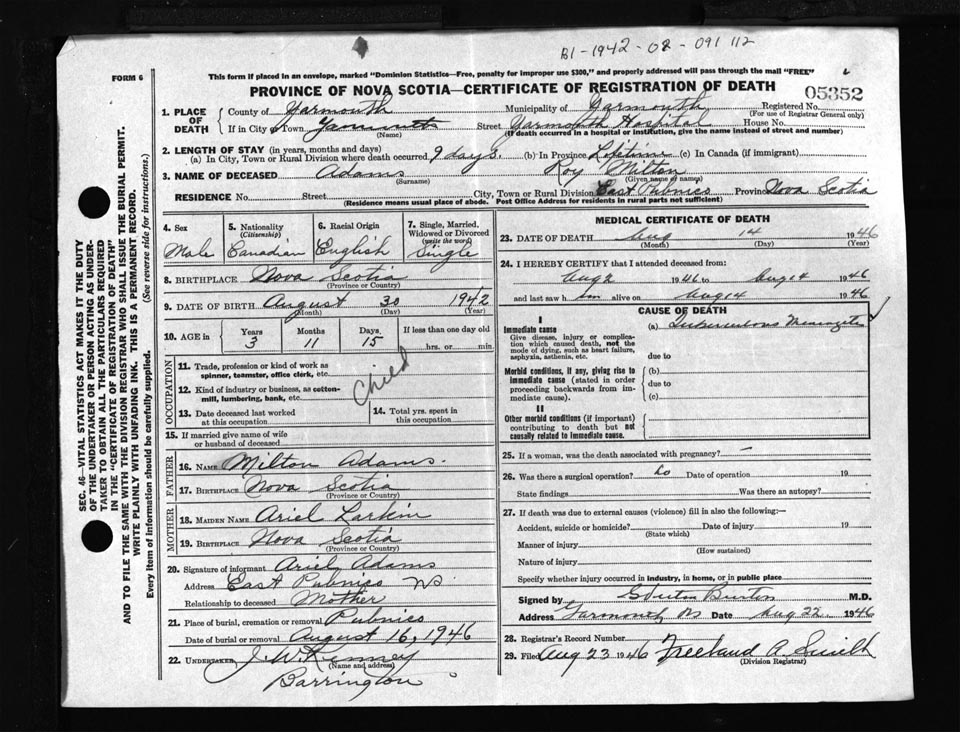 B1-1942-08-091112
FORM 6
This form if placed in an envelope, marked "Dominion Statistics—Free, penalty for improper use $300," and properly addressed will pass through the mail "FREE"
PROVINCE OF NOVA SCOTIA—CERTIFICATE OF REGISTRATION OF DEATH
05352
1. PLACE OF DEATH
County of Yarmouth Municipality of Yarmouth Registered No.
(For use of Registrar General only)
If in City or Town Yarmouth Street Yarmouth Hospital House No.
(Name) (If death occurred in a hospital or institution, give the name instead of street and number)
2. LENGTH OF STAY (in years, months and days)
(a) In City, Town or Rural Division where death occurred 9 days. (b) In Province Lifetime (c) In Canada (if immigrant)
3. NAME OF DECEASED Adams Roy Milton
(Surname) (Given name or names)
RESIDENCE No. Street City, Town or Rural Division East Pubnico Province Nova Scotia
(Residence means usual place of abode. Post Office Address for residents in rural parts not sufficient)
4. Sex Male
5. Nationality (Citizenship) Canadian
6. Racial Origin English
7. Single, Married, Widowed or Divorced (write the word) Single
8. BIRTHPLACE Nova Scotia
(Province or Country)
9. DATE OF BIRTH August 30 1942
(Month) (Day) (Year)
10. AGE in Years 3 Months 11 Days 15 If less than one day old hrs. or min.
OCCUPATION
11. Trade, profession or kind of work as spinner, teamster, office clerk, etc.
12. Kind of industry or business, as cotton-mill, lumbering, bank, etc.
Child
13. Date deceased last worked at this occupation
14. Total yrs. spent in this occupation
15. If married give name of wife or husband of deceased
FATHER
16. NAME Milton Adams.
17. BIRTHPLACE Nova Scotia
(Province or Country)
MOTHER
18. MAIDEN NAME Ariel Larkin
19. BIRTHPLACE Nova Scotia
(Province or Country)
20. Signature of informant Ariel Adams
Address East Pubnico NS
Relationship to deceased Mother
21. Place of burial, cremation or removal Pubnico
Date of burial or removal August 16, 1946
22. UNDERTAKER J. W. Kenney
(Name and address)
Barrington
MEDICAL CERTIFICATE OF DEATH
23. DATE OF DEATH Aug 14 1946
(Month) (Day) (Year)
24. I HEREBY CERTIFY that I attended deceased from:
Aug 2 1946 to Aug 14 1946
and last saw him alive on Aug 14 1946
CAUSE OF DEATH
I
Immediate cause
Give disease, injury or complication which caused death, not the mode of dying, such as heart failure, asphyxia, asthenia, etc.
(a) Tuberculous Meningitis
due to
Morbid conditions, if any, giving rise to immediate cause (stated in order proceeding backwards from immediate cause).
(b)
due to
(c)
II
Other morbid conditions (if important) contributing to death but not causally related to immediate cause.
25. If a woman, was the death associated with pregnancy? —
26. Was there a surgical operation? No Date of operation 19
State findings Was there an autopsy?
27. If death was due to external causes (violence) fill in also the following:—
Accident, suicide or homicide? Date of injury 19
(State which)
Manner of injury
(How sustained)
Nature of injury
Specify whether injury occurred in industry, in home, or in public place
Signed by Burton M.D.
Address Yarmouth NS Date Aug 22 1946
28. Registrar's Record Number
29. Filed Aug 23 1946 Freeland A. Smith
(Division Registrar)
SEC. 46—VITAL STATISTICS ACT MAKES IT THE DUTY
OF THE UNDERTAKER OR PERSON ACTING AS UNDER-
TAKER TO OBTAIN ALL THE PARTICULARS REQUIRED
IN THE "CERTIFICATE OF REGISTRATION OF DEATH"
AND TO FILE THE SAME WITH THE DIVISION REGISTRAR WHO SHALL ISSUE THE BURIAL PERMIT.
WRITE PLAINLY WITH UNFADING INK. THIS IS A PERMANENT RECORD.
Every item of information should be carefully supplied. (See reverse side for instructions.)